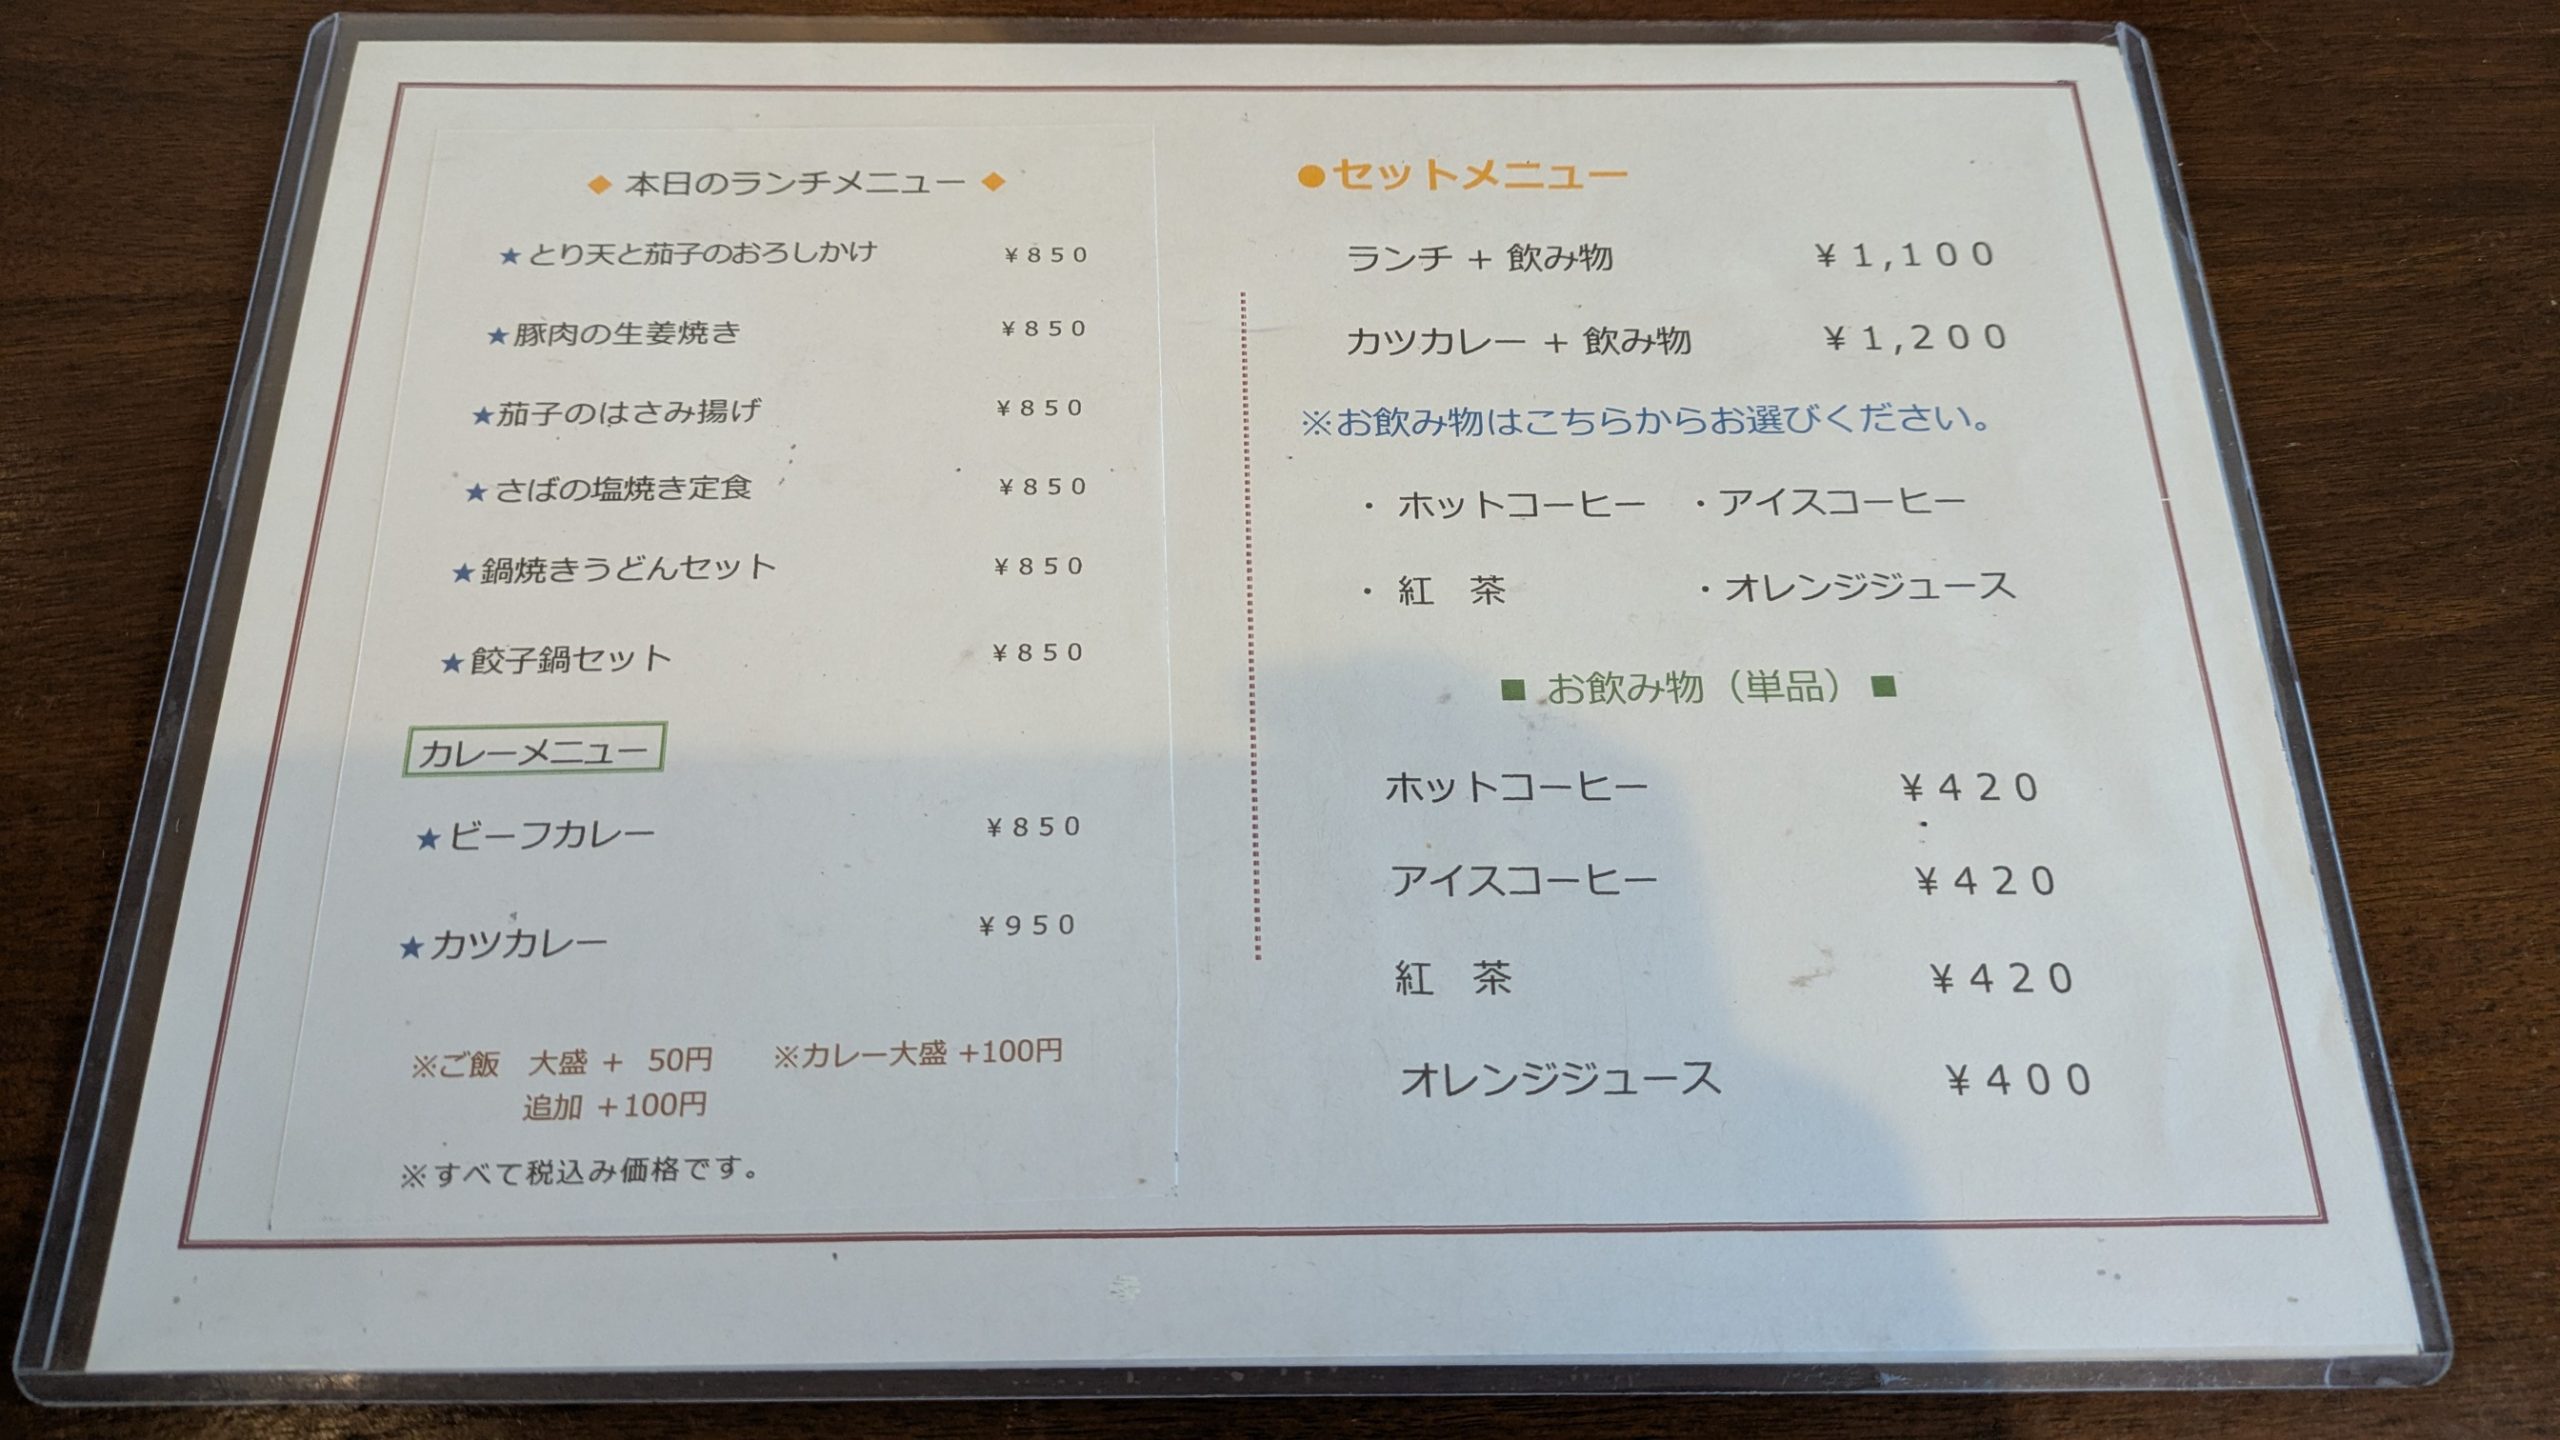 ◆ 本日のランチメニュー ◆
★とり天と茄子のおろしかけ ￥８５０
★豚肉の生姜焼き ￥８５０
★茄子のはさみ揚げ ￥８５０
★さばの塩焼き定食 ￥８５０
★鍋焼きうどんセット ￥８５０
★餃子鍋セット ￥８５０
カレーメニュー
★ビーフカレー ￥８５０
★カツカレー ￥９５０
※ご飯　大盛 +  50円　　※カレー大盛 +100円
追加 +100円
※すべて税込み価格です。
●セットメニュー
ランチ + 飲み物 ￥１,１００
カツカレー + 飲み物 ￥１,２００
※お飲み物はこちらからお選びください。
・ ホットコーヒー　・アイスコーヒー
・ 紅　茶　・オレンジジュース
■ お飲み物（単品） ■
ホットコーヒー ￥４２０
アイスコーヒー ￥４２０
紅　茶 ￥４２０
オレンジジュース ￥４００